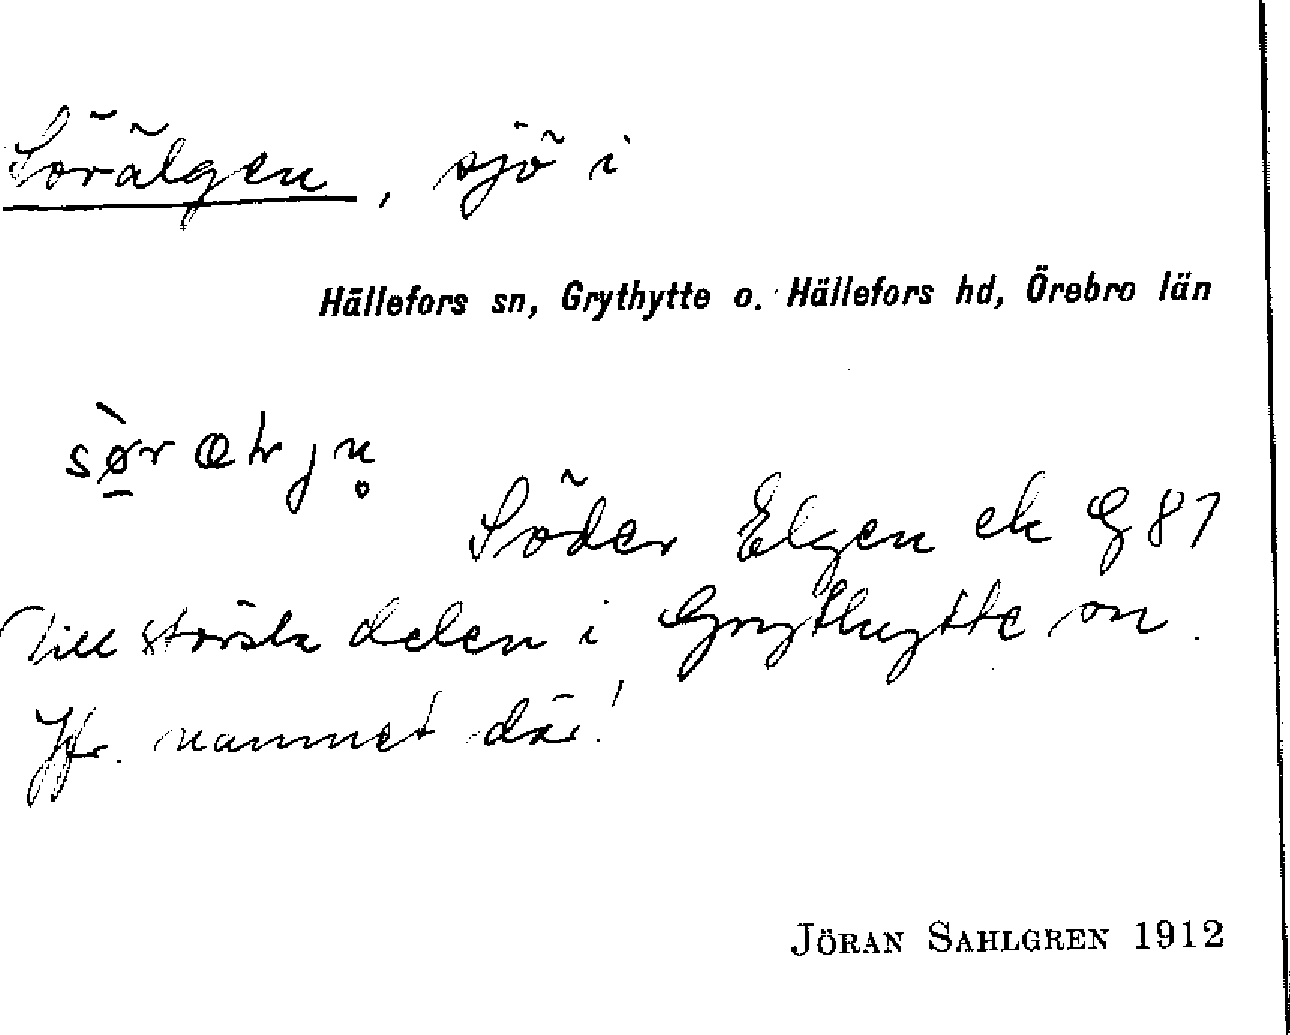 Sörälgen, sjö i
Hällefors sn, Grythytte o. Hällefors hd, Örebro län
Söder Elgen ek G 87
Till största delen i Grythytte sn.
Jfr. namnet där!
JÖRAN SAHLGREN 1912